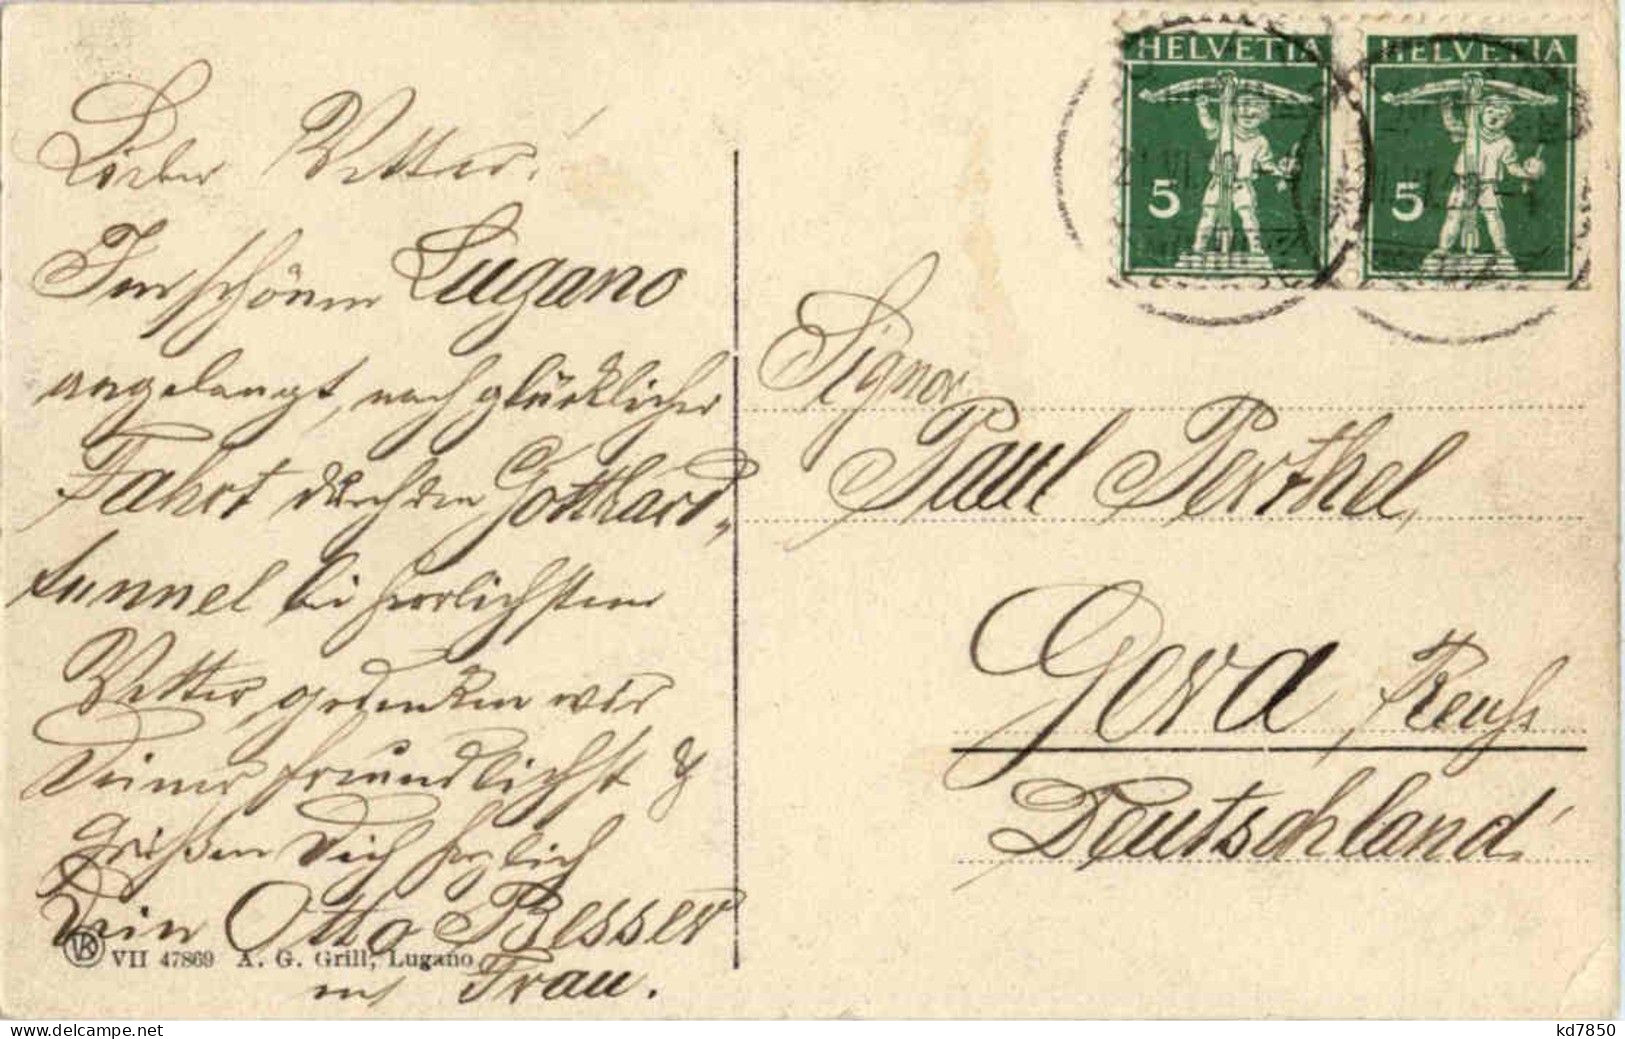 Lieber Vetter!
Im schönen Lugano
angelangt, nach glücklicher
Fahrt durch den Gotthard„
tunnel bei herrlichstem
Wetter, gedenken wir
Deiner freundlichst &
grüßen Dich herzlich
Dein Otto Besser
u. Frau.
VK VII 47869 A. G. Grill, Lugano
HELVETIA HELVETIA
5 5
Signor
Paul Perthel,
Gera, Reuß
Deutschland
kd7850